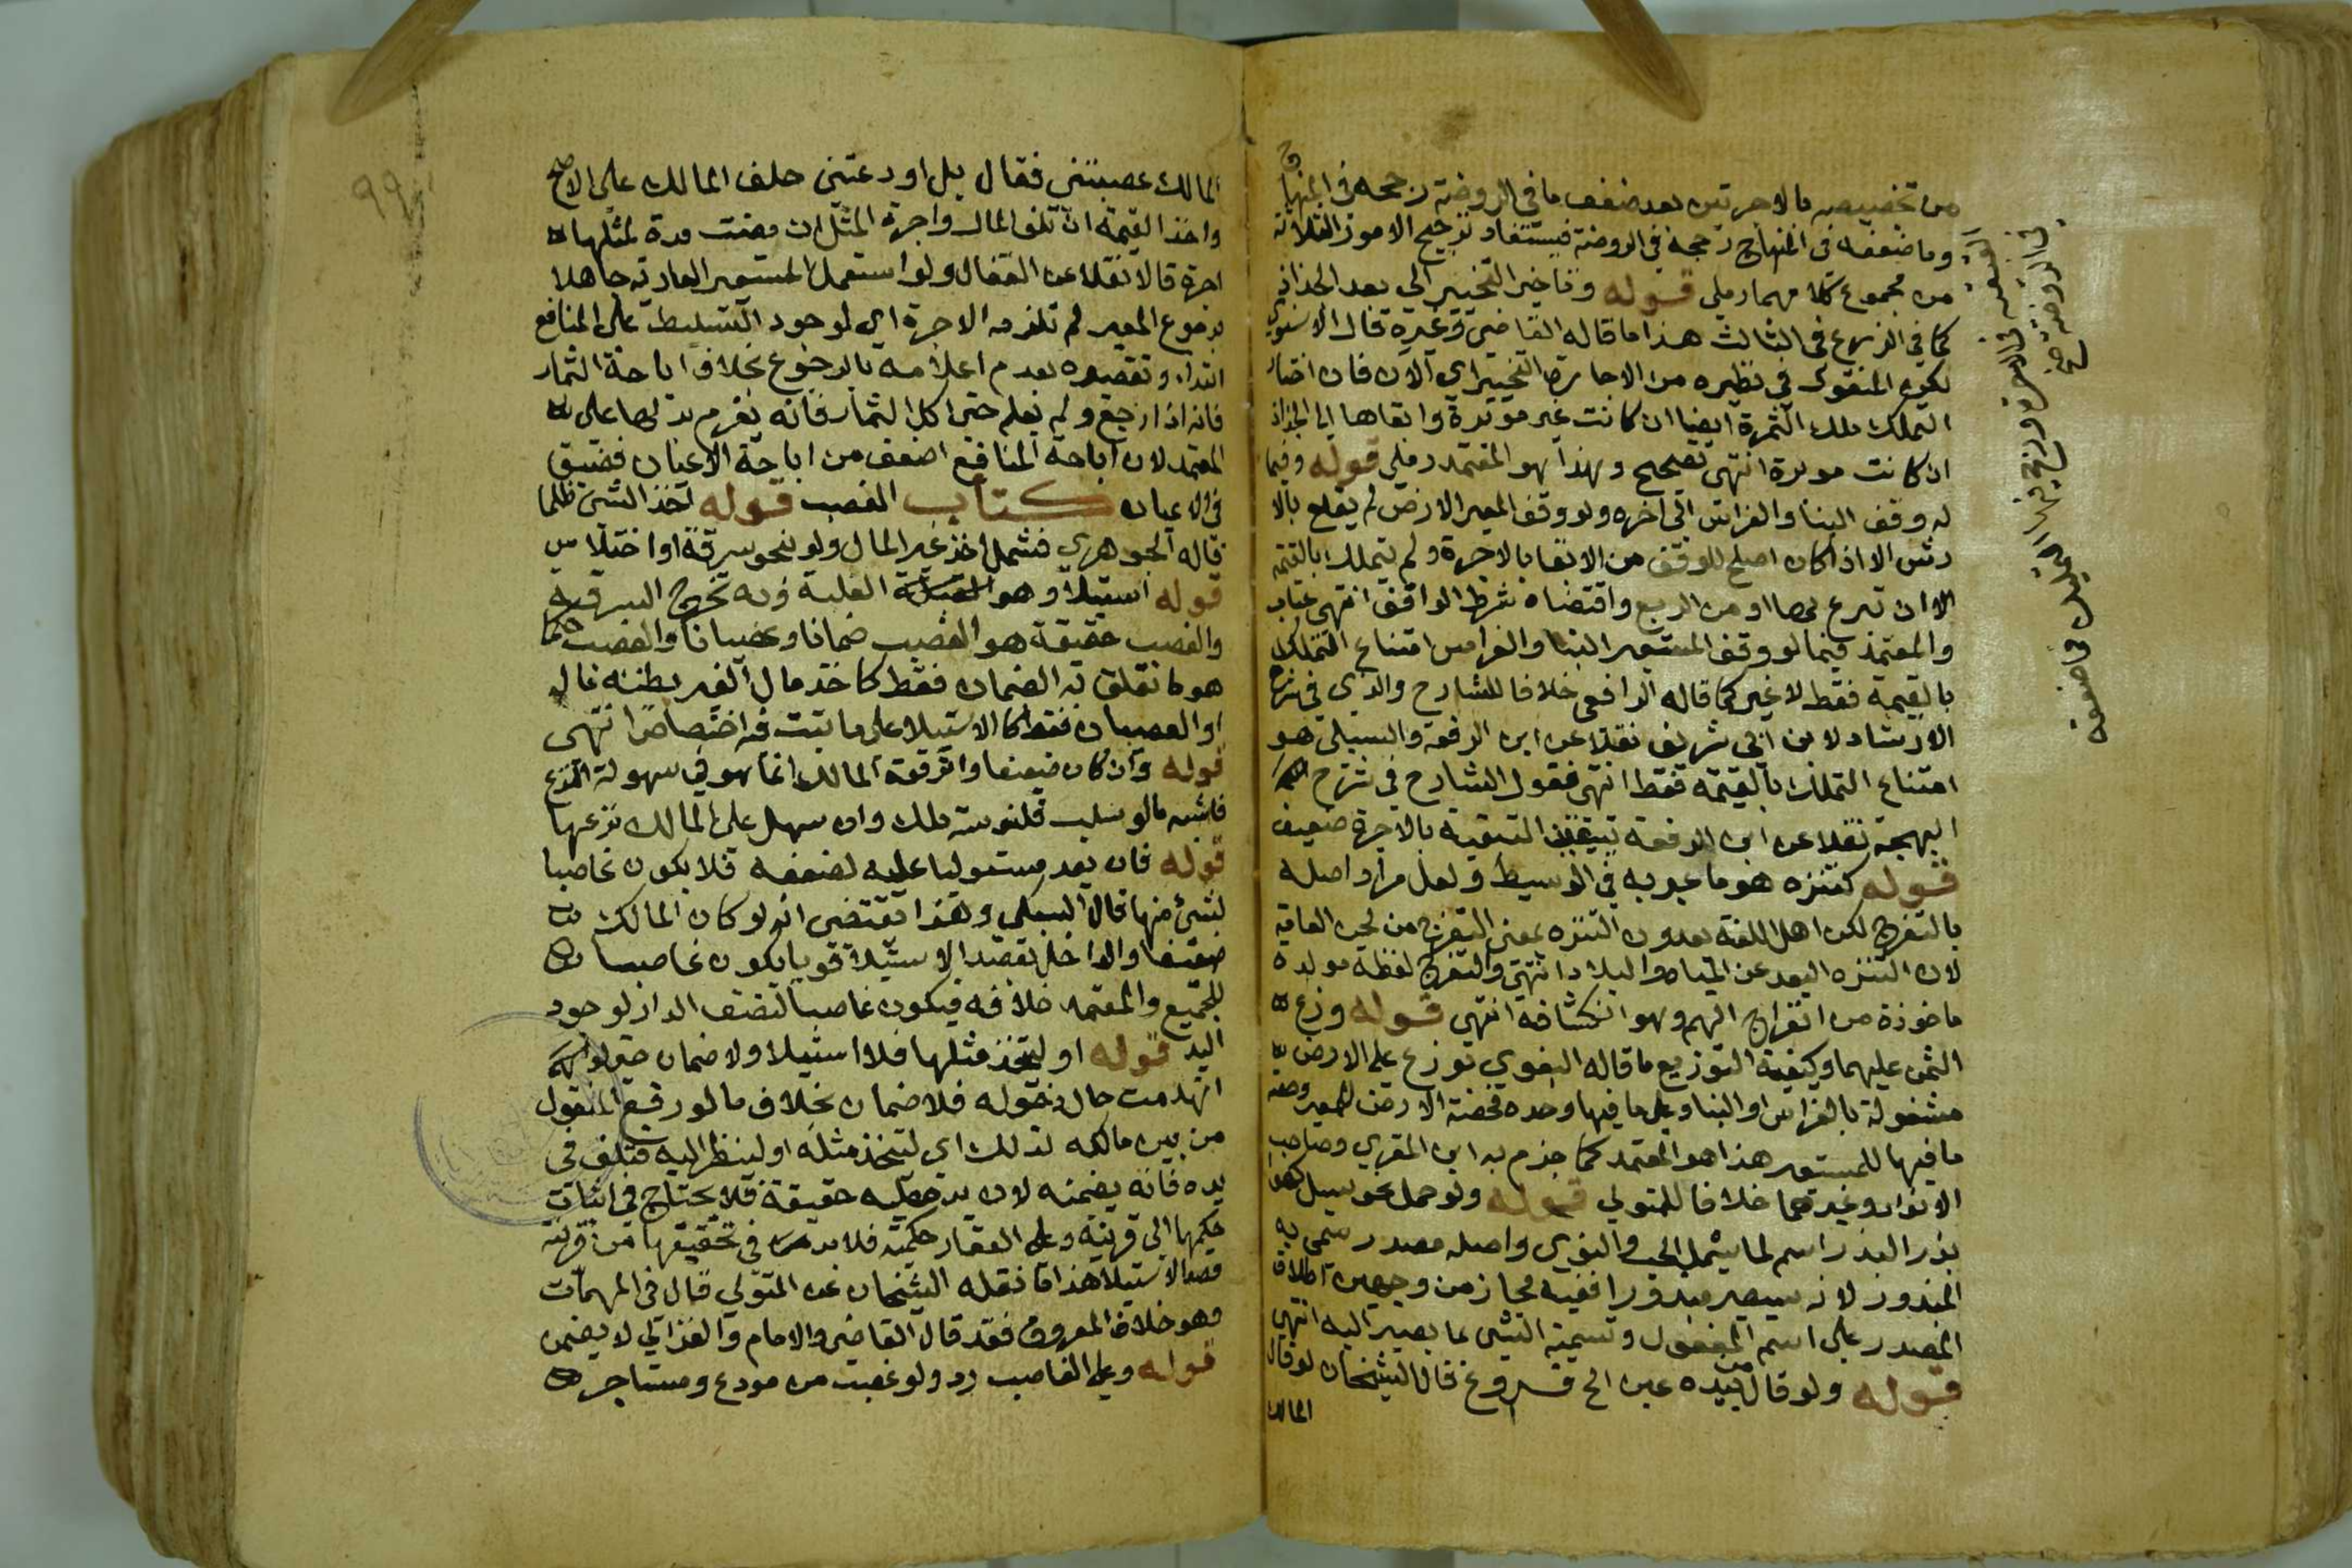 من تخصيصه بالاخرتين بعد ضعف ما في الروضة رجحه في المنهاج
وما ضعفه في المنهاج رجحه في الروضة فيستفاد ترجيح الامور الثلاثة
من مجموع كلامهما رملي قوله وتاخير التخيير الى بعد الجذاذ
كما في الزرع في الثالث هذا ما قاله القاضي وغيره قال الاسنوي
لكن المنقول في نظيره من الاجارة التخيير اي الآن فان اختار
التملك ملك الثمرة ايضا ان كانت غير موبرة وابقاها الى الجذاذ
ان كانت موبرة انتهى تصحيح وهذا هو المعتمد رملي قوله وفيما
لو وقف البنا والغراس الى اخره ولو وقف المعير الارض لم يقلع بالا
رش الا اذا كان اصلح للوقف من الابقا بالاجرة ولم يتملك بالقيمة
الا ان تبرع بها او من الريع واقتضاه شرط الواقف انتهى عباب
والمعتمد فيما لو وقف المستعير البنا والغراس امتناع التملك
بالقيمة فقط لا غير كما قاله الرافعي خلافا للشارح والذي في شرح
الارشاد لابن ابي شريف نقلا عن ابن الرفعة والسبكي هو
امتناع التملك بالقيمة فقط انتهى فقول الشارح في شرح
البهجة نقلا عن ابن الرفعة تتعين التبقية بالاجرة ضعيف
قوله كتنزه هو ما عبر به في الوسيط ولعل مراد اصله
بالتفرج لكن اهل اللغة يعدون التنزه بمعنى التفرج من لحن العامة
لان التنزه البعد عن المياه والبلاد انتهى والتفرج لفظة مولدة
ماخوذة من انفراج الهم وهو انكشافه انتهى قوله وزع
الثمن عليهما وكيفية التوزيع ما قاله البغوي توزع على الارض
مشغولة بالغراس او البنا وعلى ما فيها وحده فحصة الارض للمعير وحصة
ما فيها للمستعير هذا هو المعتمد كما جزم به ابن المقري وصاحب
الانوار وغيرهما خلافا للمتولي قوله ولو حمل نحو سيل
بذرا البذر اسم لما يشمل الحب والنوى واصله مصدر سمي به
المبذور لانه سيصير مبذورا ففيه مجاز من وجهين اطلاق
المصدر على اسم المفعول وتسمية الشي بما يصير اليه انتهى
قوله ولو قال من بيده عين الخ فروع قال الشيخان لو قال
المالك
المالك غصبتني فقال بل اودعتني حلف المالك على الاصح
واخذ القيمة ان تلف المال واجرة المثل ان مضت مدة لمثلها
اجرة قالا نقلا عن القفال ولو استعمل المستعير العارية جاهلا
برجوع المعير لم تلزمه الاجرة اي لوجود التسليط على المنافع
ابتداء وتقصيره بعدم اعلامه بالرجوع بخلاف اباحة الثمار
فانه اذا رجع ولم يعلم حتى اكل الثمار فانه يغرم بدلها على
المعتمد لان اباحة المنافع اضعف من اباحة الاعيان فضيق
في الاعيان كتاب الغصب قوله اخذ الشي ظلما
قاله الجوهري فشمل اخذ غير المال ولو نحو سرقة او اختلاس
قوله استيلا وهو الغلبة وبه تخرج السرقة
والغصب حقيقة هو الغصب ضمانا وعصيانا والغصب حكما
هو ما تعلق به الضمان فقط كاخذ مال الغير يظنه ماله
او العصيان فقط كالاستيلا على ما ثبت فيه اختصاص انتهى
قوله وان كان ضعيفا واثر قوة المالك انما هو في سهولة النزع
فاشبه ما لو سلب قلنسوة ملك وان سهل على المالك نزعها
قوله فان يعد مستوليا عليه لضعفه فلا يكون غاصبا
لشي منها قال السبكي وهذا يقتضي انه لو كان المالك
ضعيفا والداخل بقصد الاستيلا قويا يكون غاصبا
للجميع والمعتمد خلافه فيكون غاصبا لنصف الدار لوجود
اليد قوله او ليتخذ مثلها فلا استيلا ولا ضمان حتى لو
انهدمت حال دخوله فلا ضمان بخلاف ما لو رفع المنقول
من بين مالكه لذلك اي ليتخذ مثله او لينظر اليه فتلف في
يده فانه يضمنه لان يده عليه حقيقة فلا يحتاج في اثبات
حكمها الى قرينة وعلى العقار حكمية فلا بد في تحقيقها من قرينة
قصد الاستيلا هذا ما نقله الشيخان عن المتولي قال في المهمات
وهو خلاف المعروف فقد قال القاضي والامام والغزالي لا يضمن
قوله وعلى الغاصب رد ولو غصب من مودع ومستاجر
99